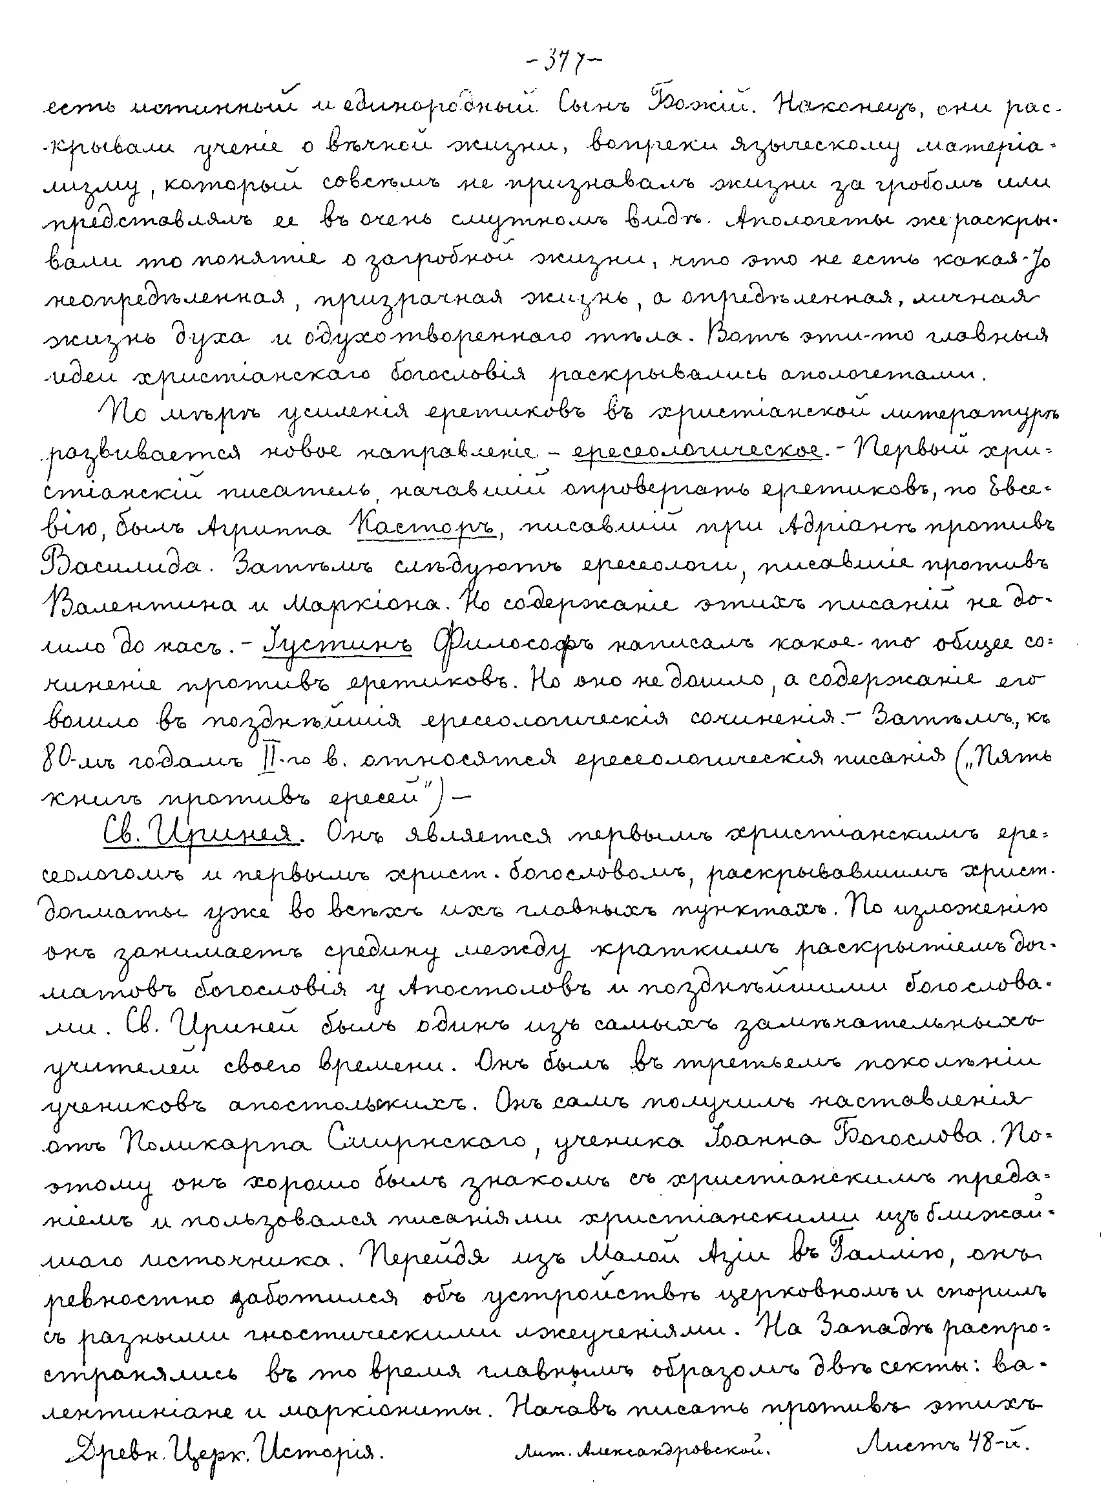 -377-
есть истинный и единородный Сынъ Божій. Наконецъ, они рас-
-крывали ученіе о вѣчной жизни, вопреки языческому матеріа-
лизму, который совсѣмъ не признавалъ жизни за гробомъ или
представлялъ ее въ очень смутномъ видѣ. Апологеты же раскры-
вали то понятіе о загробной жизни, что это не есть какая-то
неопредѣленная, призрачная жизнь, а опредѣленная, личная
жизнь духа и одухотвореннаго тѣла. Вотъ эти-то главныя
идеи христіанскаго богословія раскрывались апологетами.
По мѣрѣ усиленія еретиковъ въ христіанской литературѣ
развивается новое направленіе - ересеологическое. - Первый хри-
стіанскій писатель, начавшій опровергать еретиковъ, по Евсе-
вію, былъ Агриппа Касторъ, писавшій при Адріанѣ противъ
Василида. Затѣмъ слѣдуютъ ересеологи, писавшіе противъ
Валентина и Маркіона. Но содержаніе этихъ писаній не до-
шло до насъ. - Іустинъ Философъ написалъ какое-то общее со-
чиненіе противъ еретиковъ. Но оно не дошло, а содержаніе его
вошло въ позднѣйшія ересеологическія сочиненія. - Затѣмъ, къ
80-мъ годамъ II-го в. относятся ересеологическія писанія („Пять
книгъ противъ ересей") -
Св. Иринея. Онъ является первымъ христіанскимъ ере-
сеологомъ и первымъ христ. богословомъ, раскрывавшимъ христ.
догматы уже во всѣхъ ихъ главныхъ пунктахъ. По изложенію
онъ занимаетъ средину между краткимъ раскрытіемъ дог-
матовъ богословія у Апостоловъ и позднѣйшими богослова-
ми. Св. Ириней былъ одинъ изъ самыхъ замѣчательныхъ
учителей своего времени. Онъ былъ въ третьемъ поколѣніи
учениковъ апостольскихъ. Онъ самъ получилъ наставленія
отъ Поликарпа Смирнскаго, ученика Іоанна Богослова. По-
этому онъ хорошо былъ знакомъ съ христіанскимъ преда-
ніемъ и пользовался писаніями христіанскими изъ ближай-
шаго источника. Перейдя изъ Малой Азіи въ Галлію, онъ
ревностно заботился объ устройствѣ церковномъ и спорилъ
съ разными гностическими лжеученіями. На Западѣ распро-
странялись въ то время главнымъ образомъ двѣ секты: ва-
лентиніане и маркіониты. Начавъ писать противъ этихъ
Древн. Церк. Исторія. Лит. Александровской. Листъ 48-й.